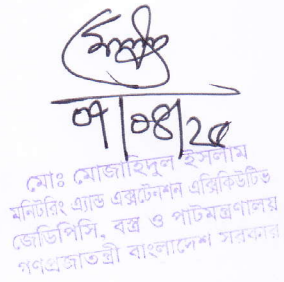 ০৭/০৪/২৫
মোঃ মোজাহিদুল ইসলাম
মনিটরিং এ্যান্ড এক্সটেনশন এক্সিকিউটিভ
জেডিপিসি, বস্ত্র ও পাটমন্ত্রণালয়
গণপ্রজাতন্ত্রী বাংলাদেশ সরকার